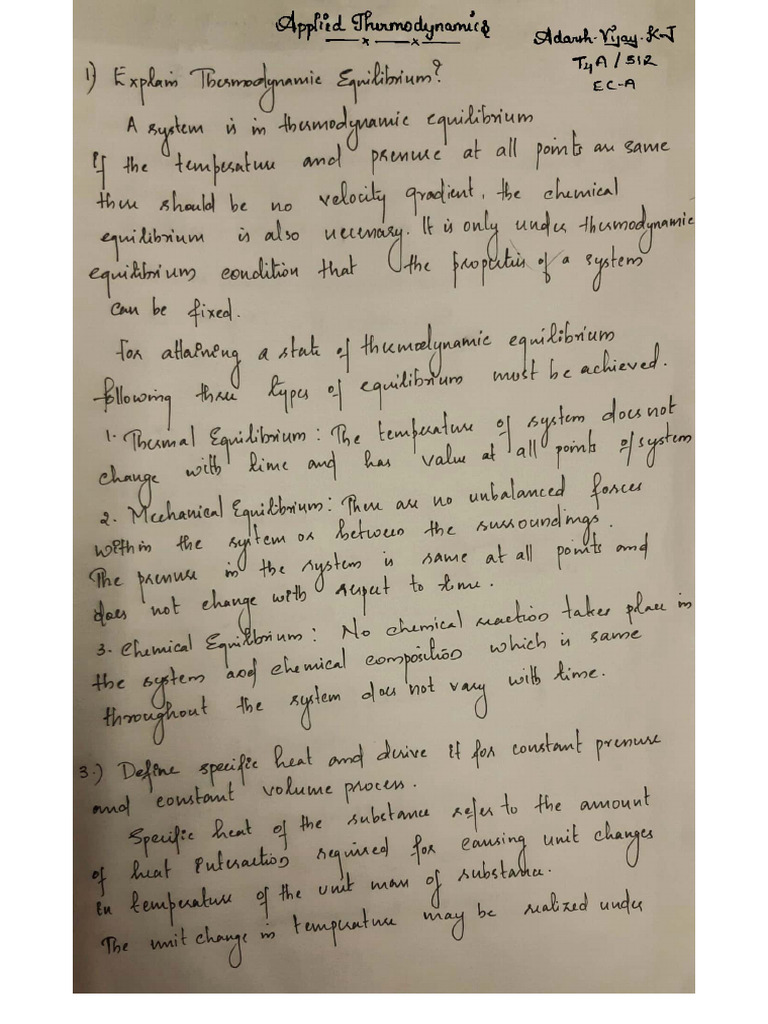 Applied Thermodynamics
Adarsh.Vijay.K.J
T4A/512
EC-A
1) Explain Thermodynamic Equilibrium?
A system is in thermodynamic equilibrium
If the temperature and pressure at all points are same
there should be no velocity gradient, the chemical
equilibrium is also necessary. It is only under thermodynamic
equilibrium condition that the properties of a system
can be fixed.
for attaining a state of thermodynamic equilibrium
following three types of equilibrium must be achieved.
1. Thermal Equilibrium: The temperature of system does not
change with time and has value at all points of system
2. Mechanical Equilibrium: There are no unbalanced forces
within the system or between the surroundings.
The pressure in the system is same at all points and
does not change with respect to time.
3. Chemical Equilibrium: No chemical reaction takes place in
the system and chemical composition which is same
throughout the system does not vary with time.
3.) Define specific heat and derive it for constant pressure
and constant volume process.
Specific heat of the substance refers to the amount
of heat interaction required for causing unit changes
in temperature of the unit mass of substance.
The unit change in temperature may be realized under